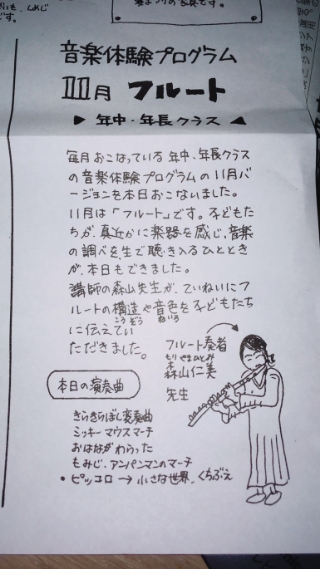 音楽体験プログラム
11月 フルート
▶ 年中・年長クラス ◀
毎月おこなっている年中・年長クラス
の音楽体験プログラムの11月バ
ージョンを本日おこないました。
11月は「フルート」です。子どもた
ちが、真近かに楽器を感じ、音楽
の調べを生で聴き入るひととき
が、本日もできました。
講師の森山先生が、ていねいにフ
ルートの構造や音色を子どもたち
こうぞう ねいろ
に伝えてい
ただきました。
フルート奏者
もりやまひとみ
森山仁美
先生
本日の演奏曲
きらきらぼし変奏曲
ミッキーマウスマーチ
おはながわらった
もみじ、アンパンマンのマーチ
• ピッコロ → 小さな世界、くちぶえ